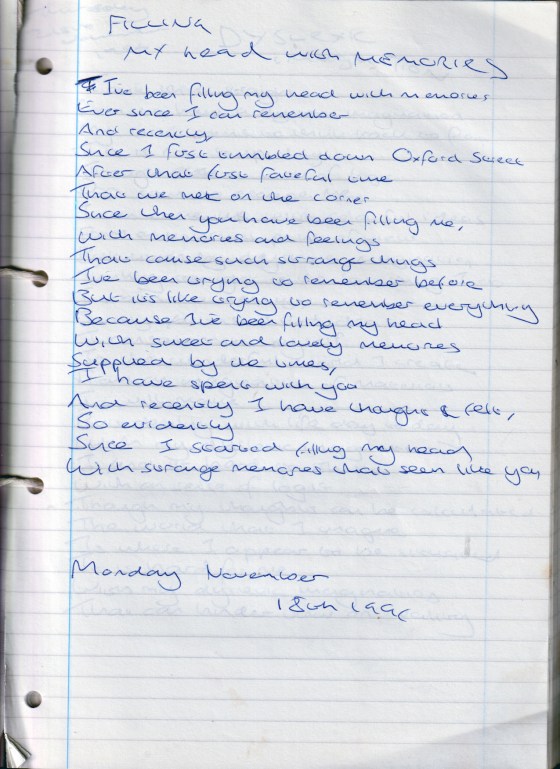 FILLING
MY head with MEMORIES
I've been filling my head with memories
Ever since I can remember
And recently
Since I first tumbled down Oxford Street
After that first fateful time
That we met on the corner
Since then you have been filling me,
With memories and feelings
That cause such strange things
I've been trying to remember before
But it's like trying to remember everything
Because I've been filling my head
With sweet and lovely memories
Supplied by the times,
I have spent with you
And recently I have thought & felt,
So evidently
Since I started filling my head
With strange memories that seem like you
Monday November
18th 199